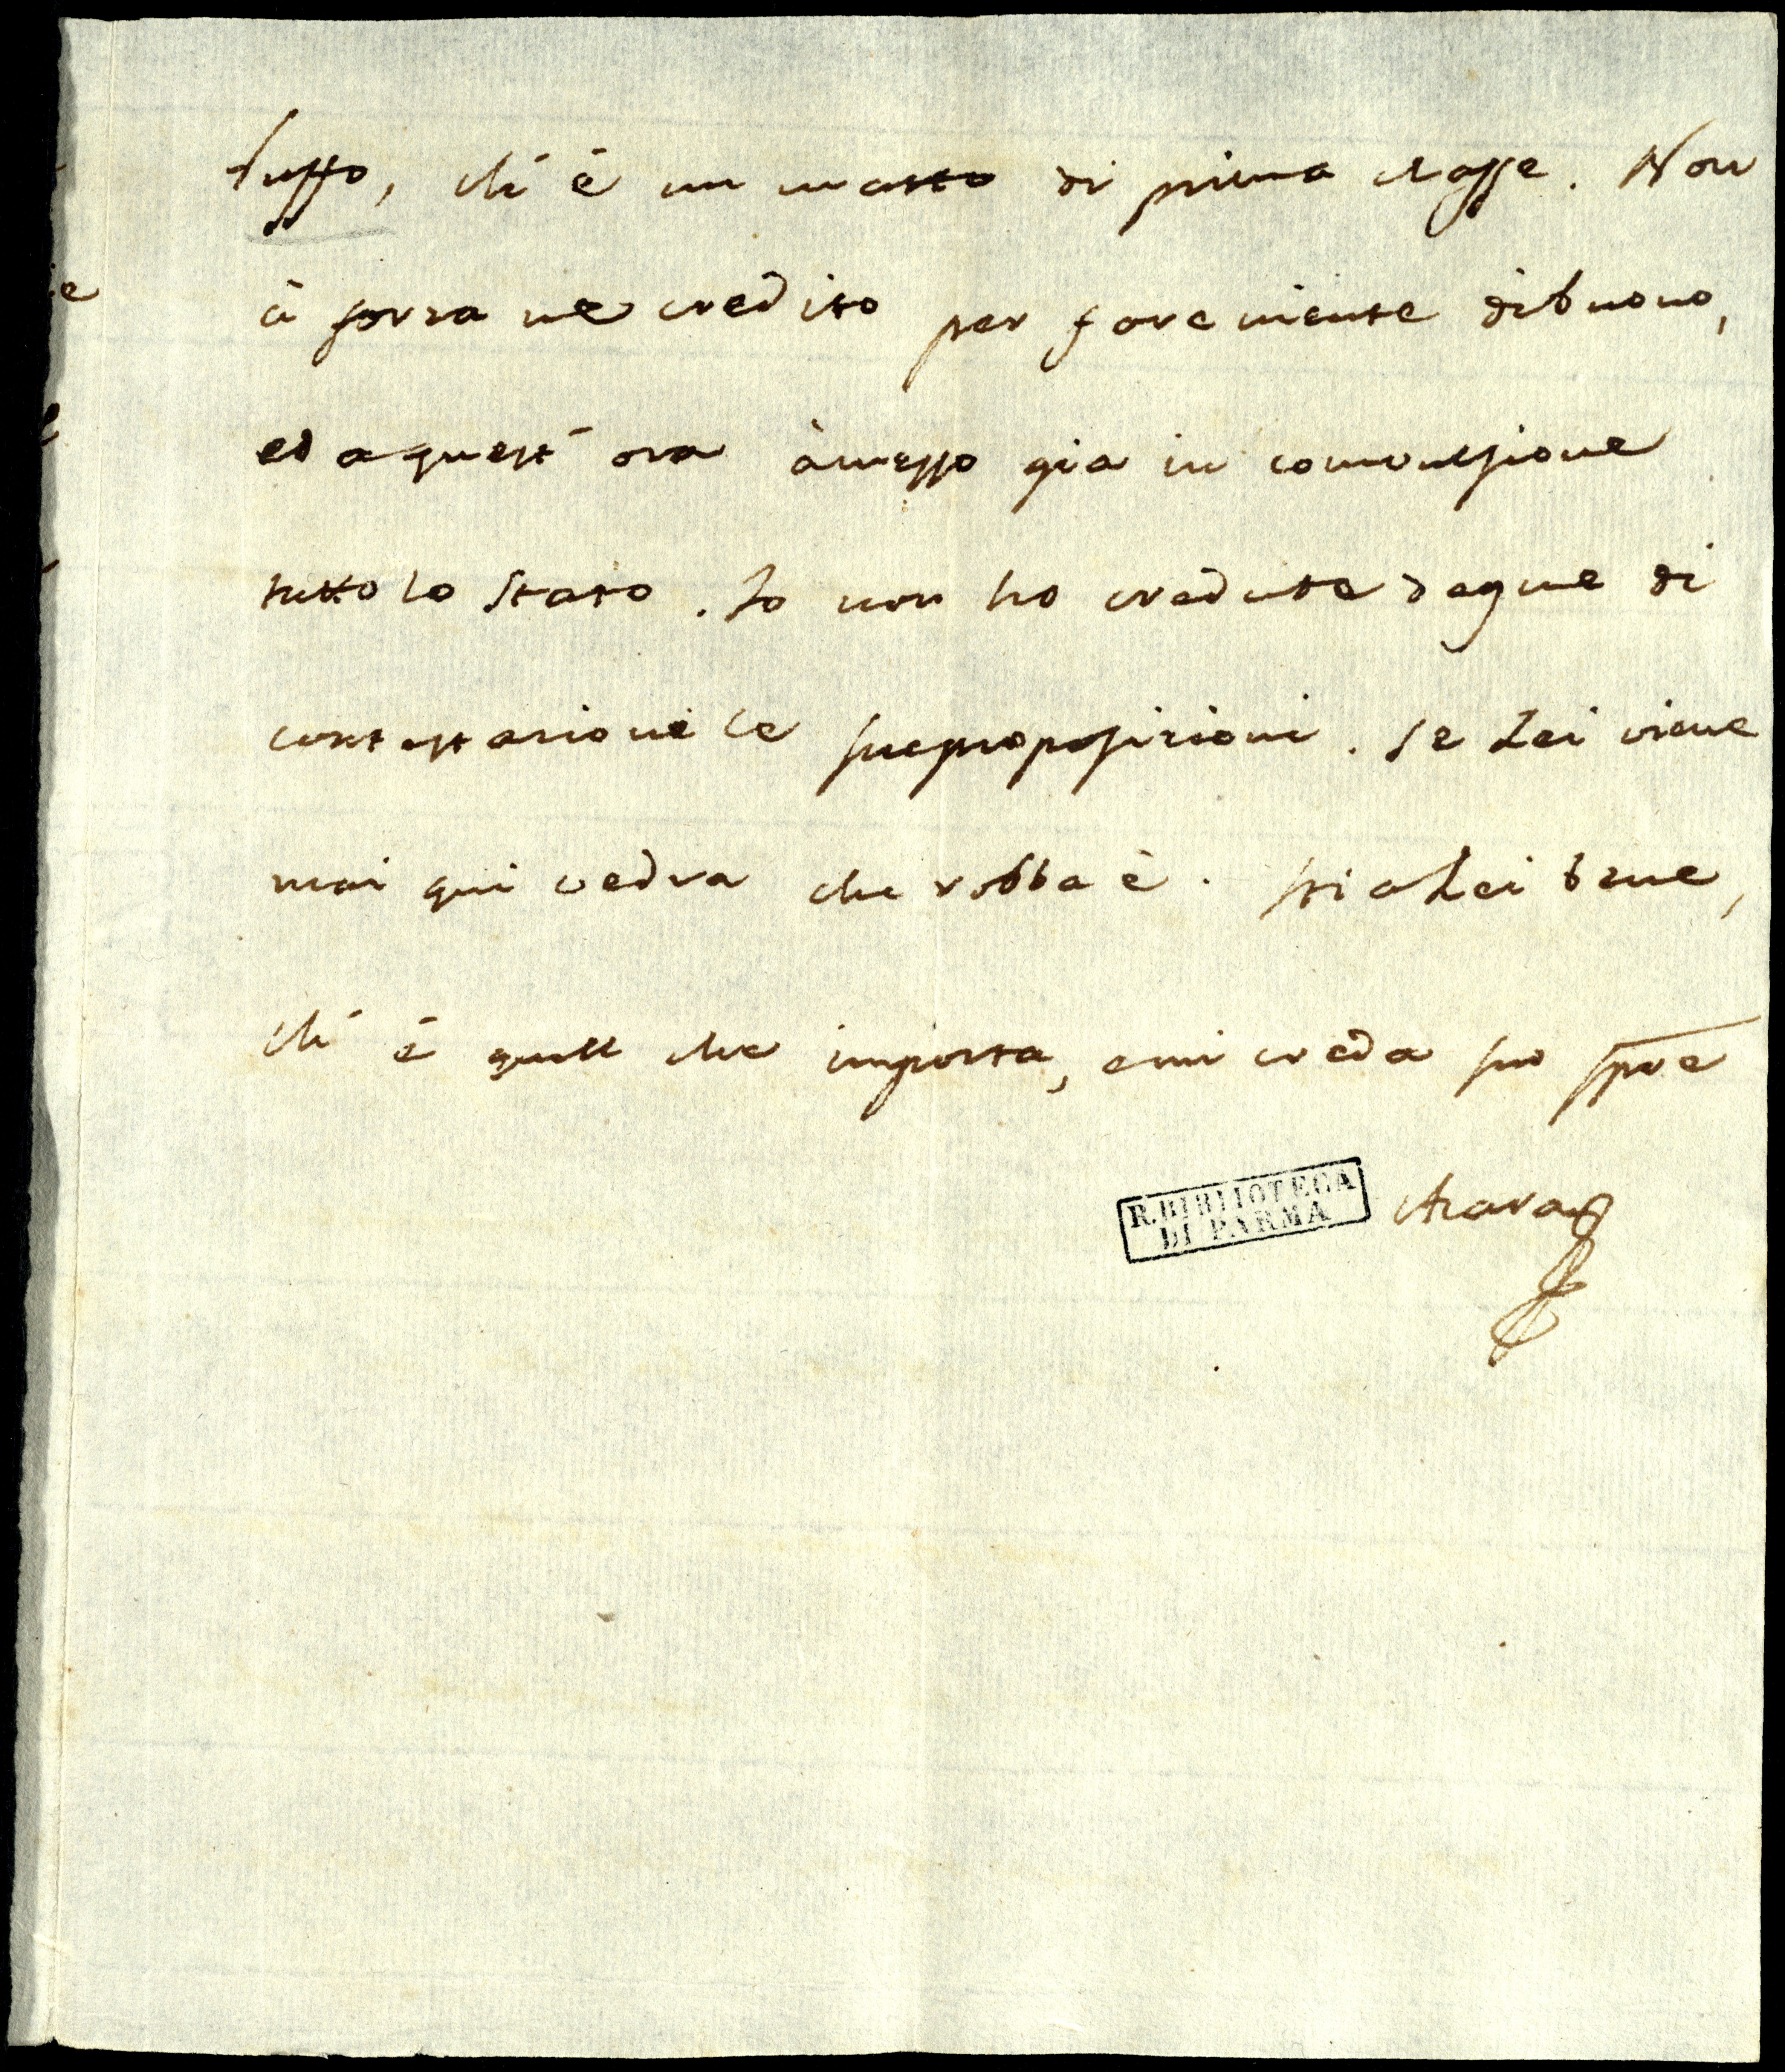 Ruffo, ch'è un matto di prima classe. Non
à forza ne credito per fare niente di buono,
ed a quest' ora à messo gia in convulsione
tutto lo Stato. Io non ho credute degne di
contestazione le sue proposizioni. Se Lei viene
mai qui vedra che robba è. Stia Lei bene,
ch' è quell che importa, e mi creda suo spre
R. BIBLIOTECA
DI PARMA
Azara